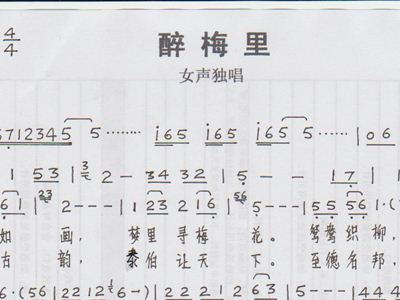 4/4
醉梅里
女声独唱
671234 5 5 ······· i65 i65 i65 | 06
1 53 | 3/2 2 - 34 32 | 5 - - 17 |
61 | 23 2 - - - | 1 23 2 16 | 56 5 - - - | 55 56 1
如 画, 梦里寻梅 花。 鸳鸯织柳,
古 韵, 泰伯让天 下。 至德名邦,
·(56 | 22 12 6 - ) | 2 2 2 63 | 5 - - - |